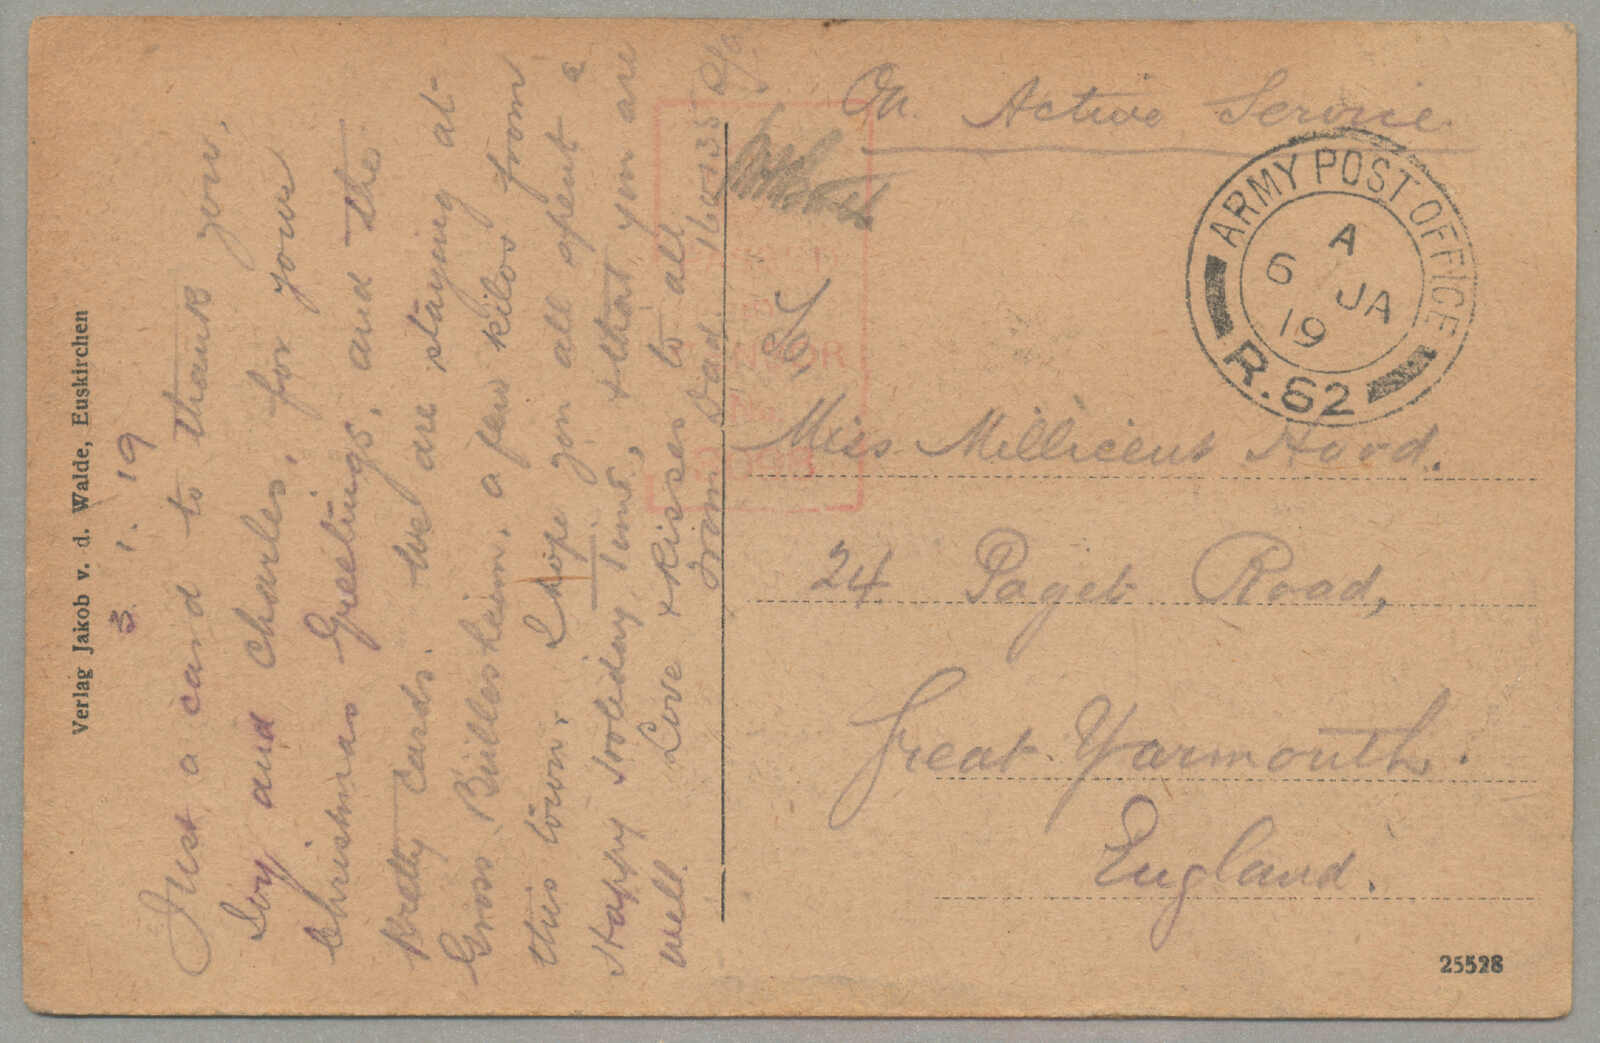 Verlag Jakob v. d. Walde, Euskirchen
3. 1. 19
Just a card to thank you,
Ivy and Charles, for your
Christmas Greetings, and the
pretty cards. We are staying at
Gross Büllesheim, a few kilos from
this town. I hope you all spent a
Happy Holiday Time, & that you are
well. Love & kisses to all
from Dad. 160135 R/a
On Active Service
ARMY POST OFFICE
A
6 JA
19
R.62
CENSOR
No.
Miss Millicent Hood.
24 Paget Road,
Great Yarmouth.
England.
25528